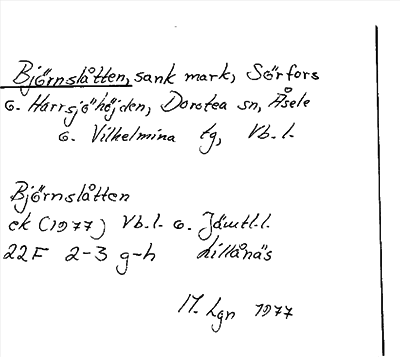 Björnslåtten, sank mark, Sörfors
o. Harrsjöhöjden, Dorotea sn, Åsele
o. Vilhelmina tg, Vb.l.
Björnslåtten
ek (1977) Vb.l. o. Jämtl.l.
22F 2-3 g-h Lillånäs
M. Lgn 1977